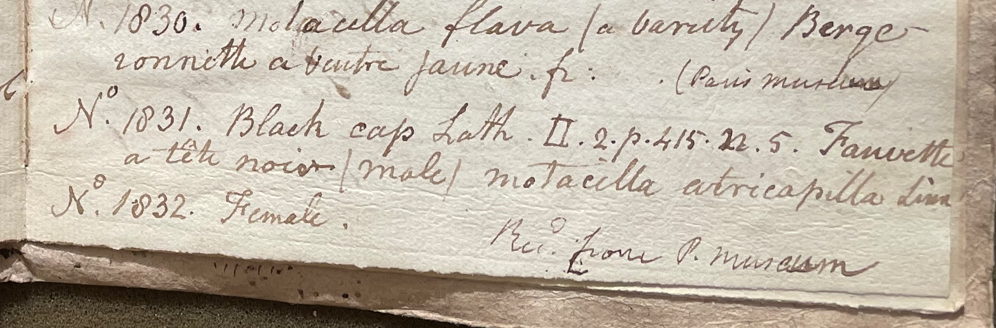 N. 1830. Motacilla flava (a variety) Berge-
ronnette a ventre jaune. fr: . (Paris museum)
No. 1831. Black cap Lath. II. 2. p. 415. n. 5. Fauvette
a tête noir (male) motacilla atricapilla Linn
No. 1832. Female.
Recd. from P. museum